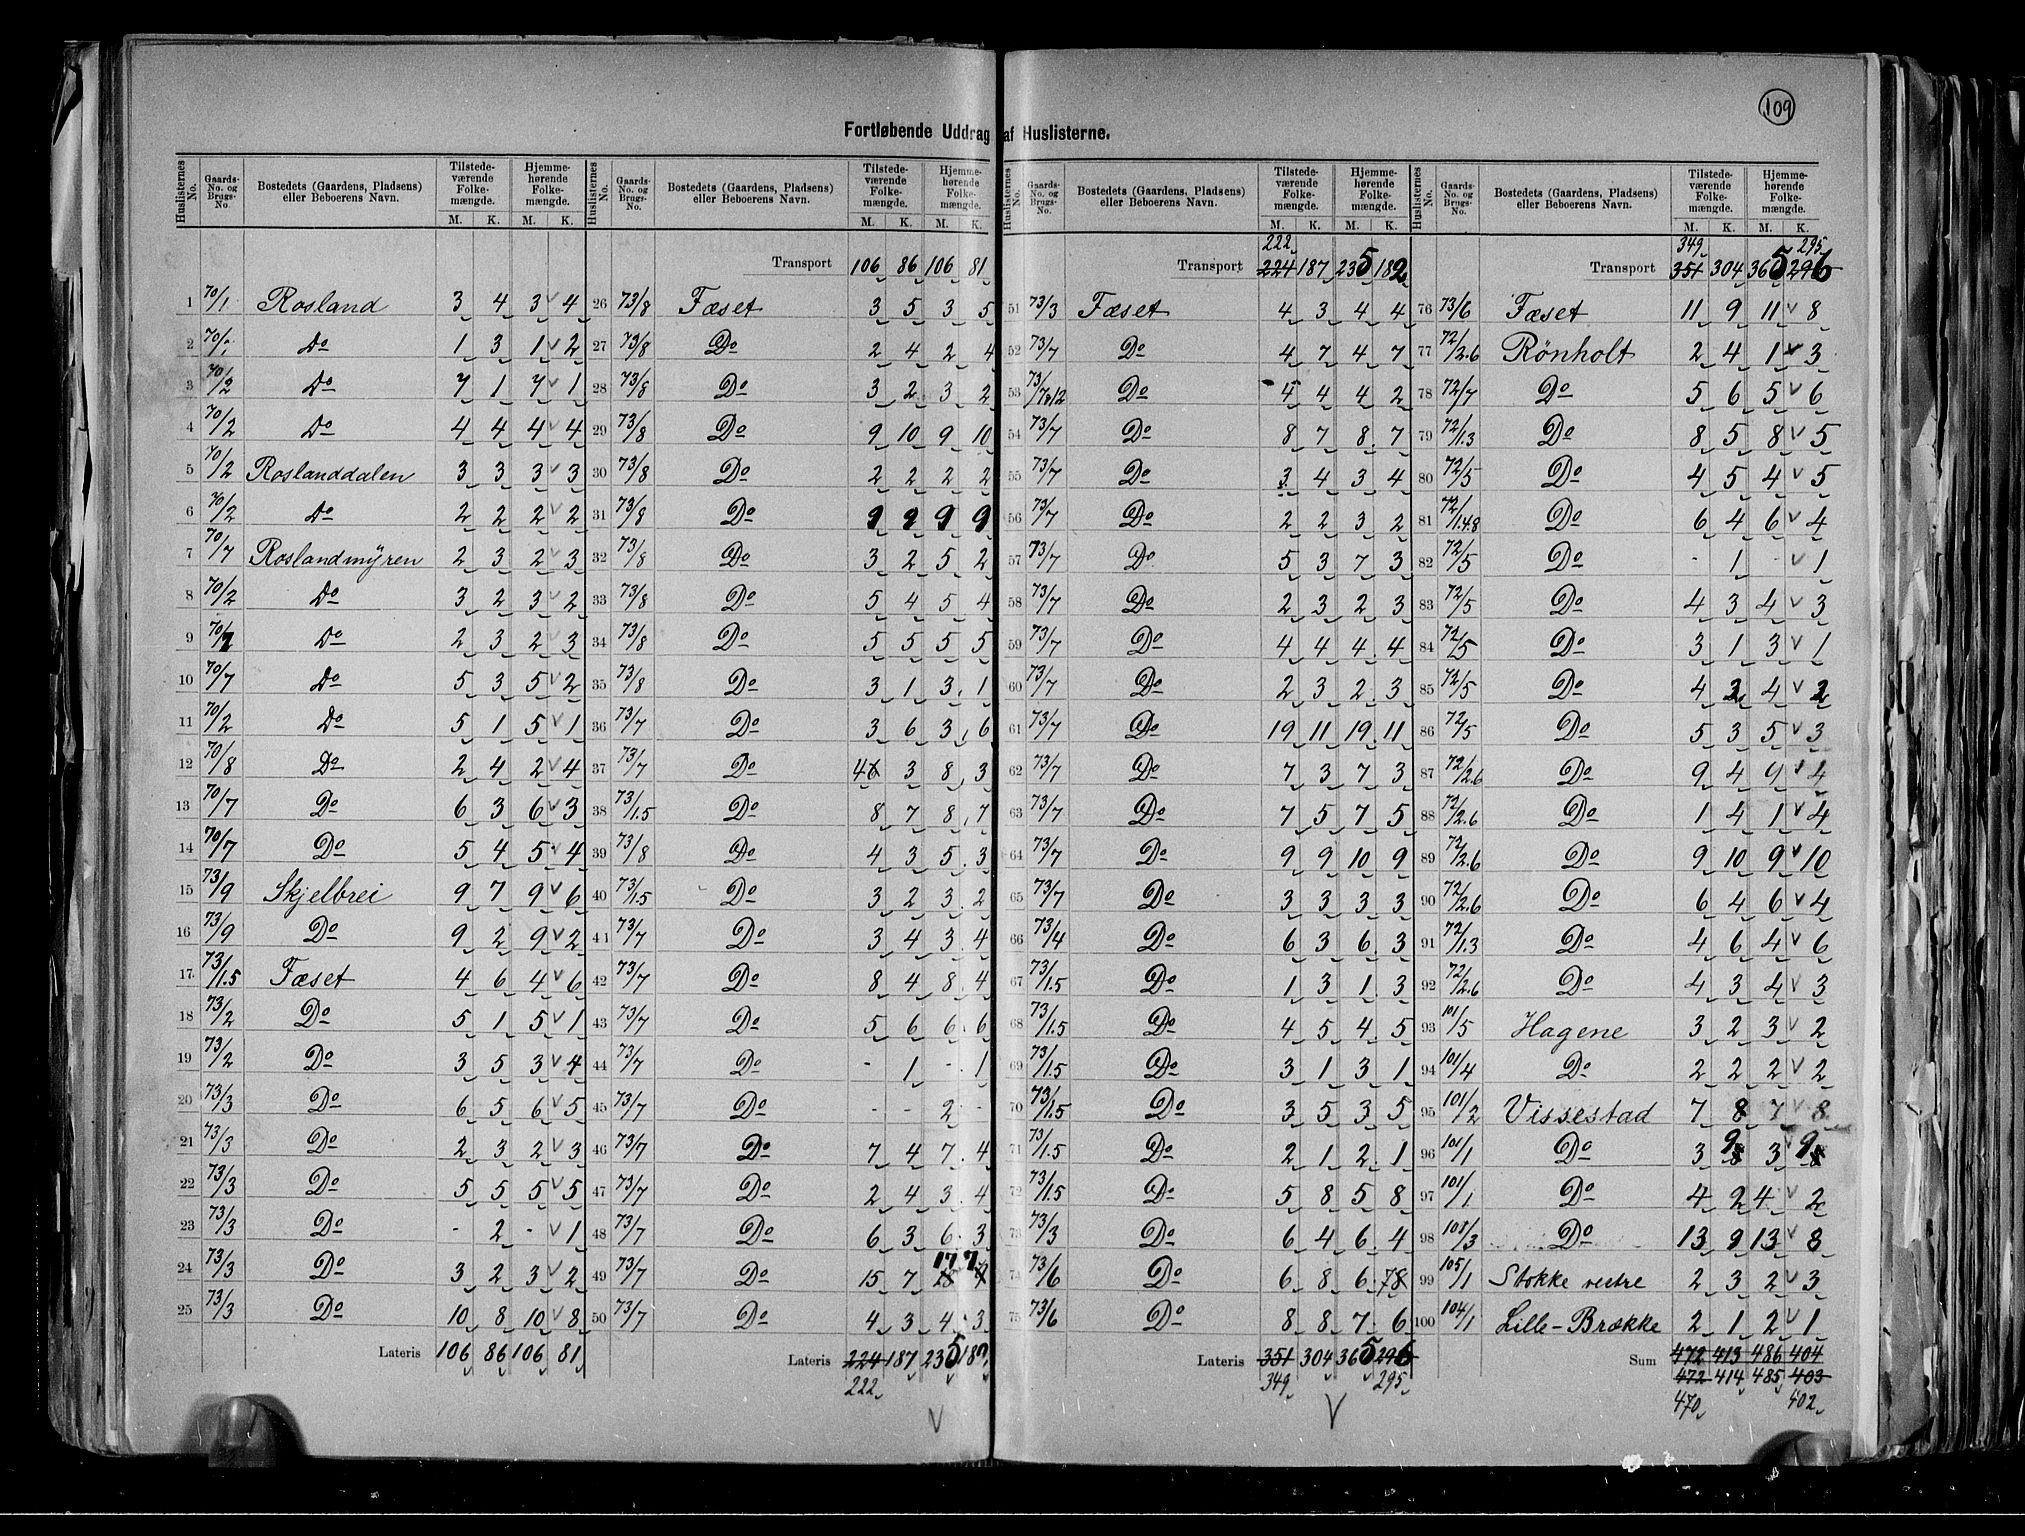 109
Fortløbende Uddrag af Huslisterne.
Huslisternes No. Gaards-No. og Brugs-No. Bostedets (Gaardens, Pladsens) eller Beboerens Navn. Tilstedeværende Folkemængde. M. K. Hjemmehørende Folkemængde. M. K.
1 70/1 Rosland 3 4 3 4
2 70/1 Do 1 3 1 2
3 70/2 Do 7 1 7 1
4 70/2 Do 4 4 4 4
5 70/2 Roslanddalen 3 3 3 3
6 70/2 Do 2 2 2 2
7 70/7 Roslandmyren 2 3 2 3
8 70/2 Do 3 2 3 2
9 70/7 Do 2 3 2 3
10 70/7 Do 5 3 5 2
11 70/2 Do 5 1 5 1
12 70/8 Do 2 4 2 4
13 70/7 Do 6 3 6 3
14 70/7 Do 5 4 5 4
15 73/9 Skjelbrei 9 7 9 6
16 73/9 Do 9 2 9 2
17 73/1.5 Fæset 4 6 4 6
18 73/2 Do 5 1 5 1
19 73/2 Do 3 5 3 4
20 73/3 Do 6 5 6 5
21 73/3 Do 2 3 2 3
22 73/3 Do 5 5 5 5
23 73/3 Do - 2 - 1
24 73/3 Do 3 2 3 2
25 73/3 Do 10 8 10 8
Lateris 106 86 106 81
Huslisternes No. Gaards-No. og Brugs-No. Bostedets (Gaardens, Pladsens) eller Beboerens Navn. Tilstedeværende Folkemængde. M. K. Hjemmehørende Folkemængde. M. K.
Transport 106 86 106 81
26 73/8 Fæset 3 5 3 5
27 73/8 Do 2 4 2 4
28 73/8 Do 3 2 3 2
29 73/8 Do 9 10 9 10
30 73/8 Do 2 2 2 2
31 73/8 Do 9 9 9 9
32 73/8 Do 3 2 5 2
33 73/8 Do 5 4 5 4
34 73/8 Do 5 5 5 5
35 73/8 Do 3 1 3 1
36 73/7 Do 3 6 3 6
37 73/7 Do 4 3 8 3
38 73/1.5 Do 8 7 8 7
39 73/8 Do 4 3 5 3
40 73/1.5 Do 3 2 3 2
41 73/7 Do 3 4 3 4
42 73/7 Do 8 4 8 4
43 73/7 Do 5 6 6 6
44 73/7 Do - 1 - 1
45 73/7 Do - - 2 -
46 73/7 Do 7 4 7 4
47 73/7 Do 2 4 3 4
48 73/7 Do 6 3 6 3
49 73/7 Do 15 7 17 7
50 73/7 Do 4 3 4 3
Lateris 224 187 235 182
222
Huslisternes No. Gaards-No. og Brugs-No. Bostedets (Gaardens, Pladsens) eller Beboerens Navn. Tilstedeværende Folkemængde. M. K. Hjemmehørende Folkemængde. M. K.
222
Transport 224 187 235 182
51 73/3 Fæset 4 3 4 4
52 73/7 Do 4 7 4 7
53 73/7.812 Do 4 4 4 2
54 73/7 Do 8 7 8 7
55 73/7 Do 3 4 3 4
56 73/7 Do 2 2 3 2
57 73/7 Do 5 3 7 3
58 73/7 Do 2 3 2 3
59 73/7 Do 4 4 4 4
60 73/7 Do 2 3 2 3
61 73/7 Do 19 11 19 11
62 73/7 Do 7 3 7 3
63 73/7 Do 7 5 7 5
64 73/7 Do 9 9 10 9
65 73/7 Do 3 3 3 3
66 73/4 Do 6 3 6 3
67 73/1.5 Do 1 3 1 3
68 73/1.5 Do 4 5 4 5
69 73/1.5 Do 3 1 3 1
70 73/1.5 Do 3 5 3 5
71 73/1.5 Do 2 1 2 1
72 73/1.5 Do 5 8 5 8
73 73/3 Do 6 4 6 4
74 73/6 Do 6 8 6 7
75 73/6 Do 8 8 7 6
Lateris 351 304 365 296
349 295
Huslisternes No. Gaards-No. og Brugs-No. Bostedets (Gaardens, Pladsens) eller Beboerens Navn. Tilstedeværende Folkemængde. M. K. Hjemmehørende Folkemængde. M. K.
349 295
Transport 351 304 365 296
76 73/6 Fæset 11 9 11 8
77 72/2.6 Rönholt 2 4 1 3
78 72/7 Do 5 6 5 6
79 72/1.3 Do 8 5 8 5
80 72/5 Do 4 5 4 5
81 72/1.4.8 Do 6 4 6 4
82 72/5 Do - 1 - 1
83 72/5 Do 4 3 4 3
84 72/5 Do 3 1 3 1
85 72/5 Do 4 2 4 2
86 72/5 Do 5 3 5 3
87 72/2.6 Do 9 4 9 4
88 72/2.6 Do 1 4 1 4
89 72/2.6 Do 9 10 9 10
90 72/2.6 Do 6 4 6 4
91 72/1.3 Do 4 6 4 6
92 72/2.6 Do 4 3 4 3
93 101/5 Hagene 3 2 3 2
94 101/4 Do 2 2 2 2
95 101/2 Vissestad 7 8 7 8
96 101/1 Do 3 9 3 9
97 101/1 Do 4 2 4 2
98 101/3 Do 13 9 13 8
99 105/1 Stokke vestre 2 3 2 3
100 104/1 Lille-Brække 2 1 2 1
Sum 472 413 486 404
472 414 485 403
470 402